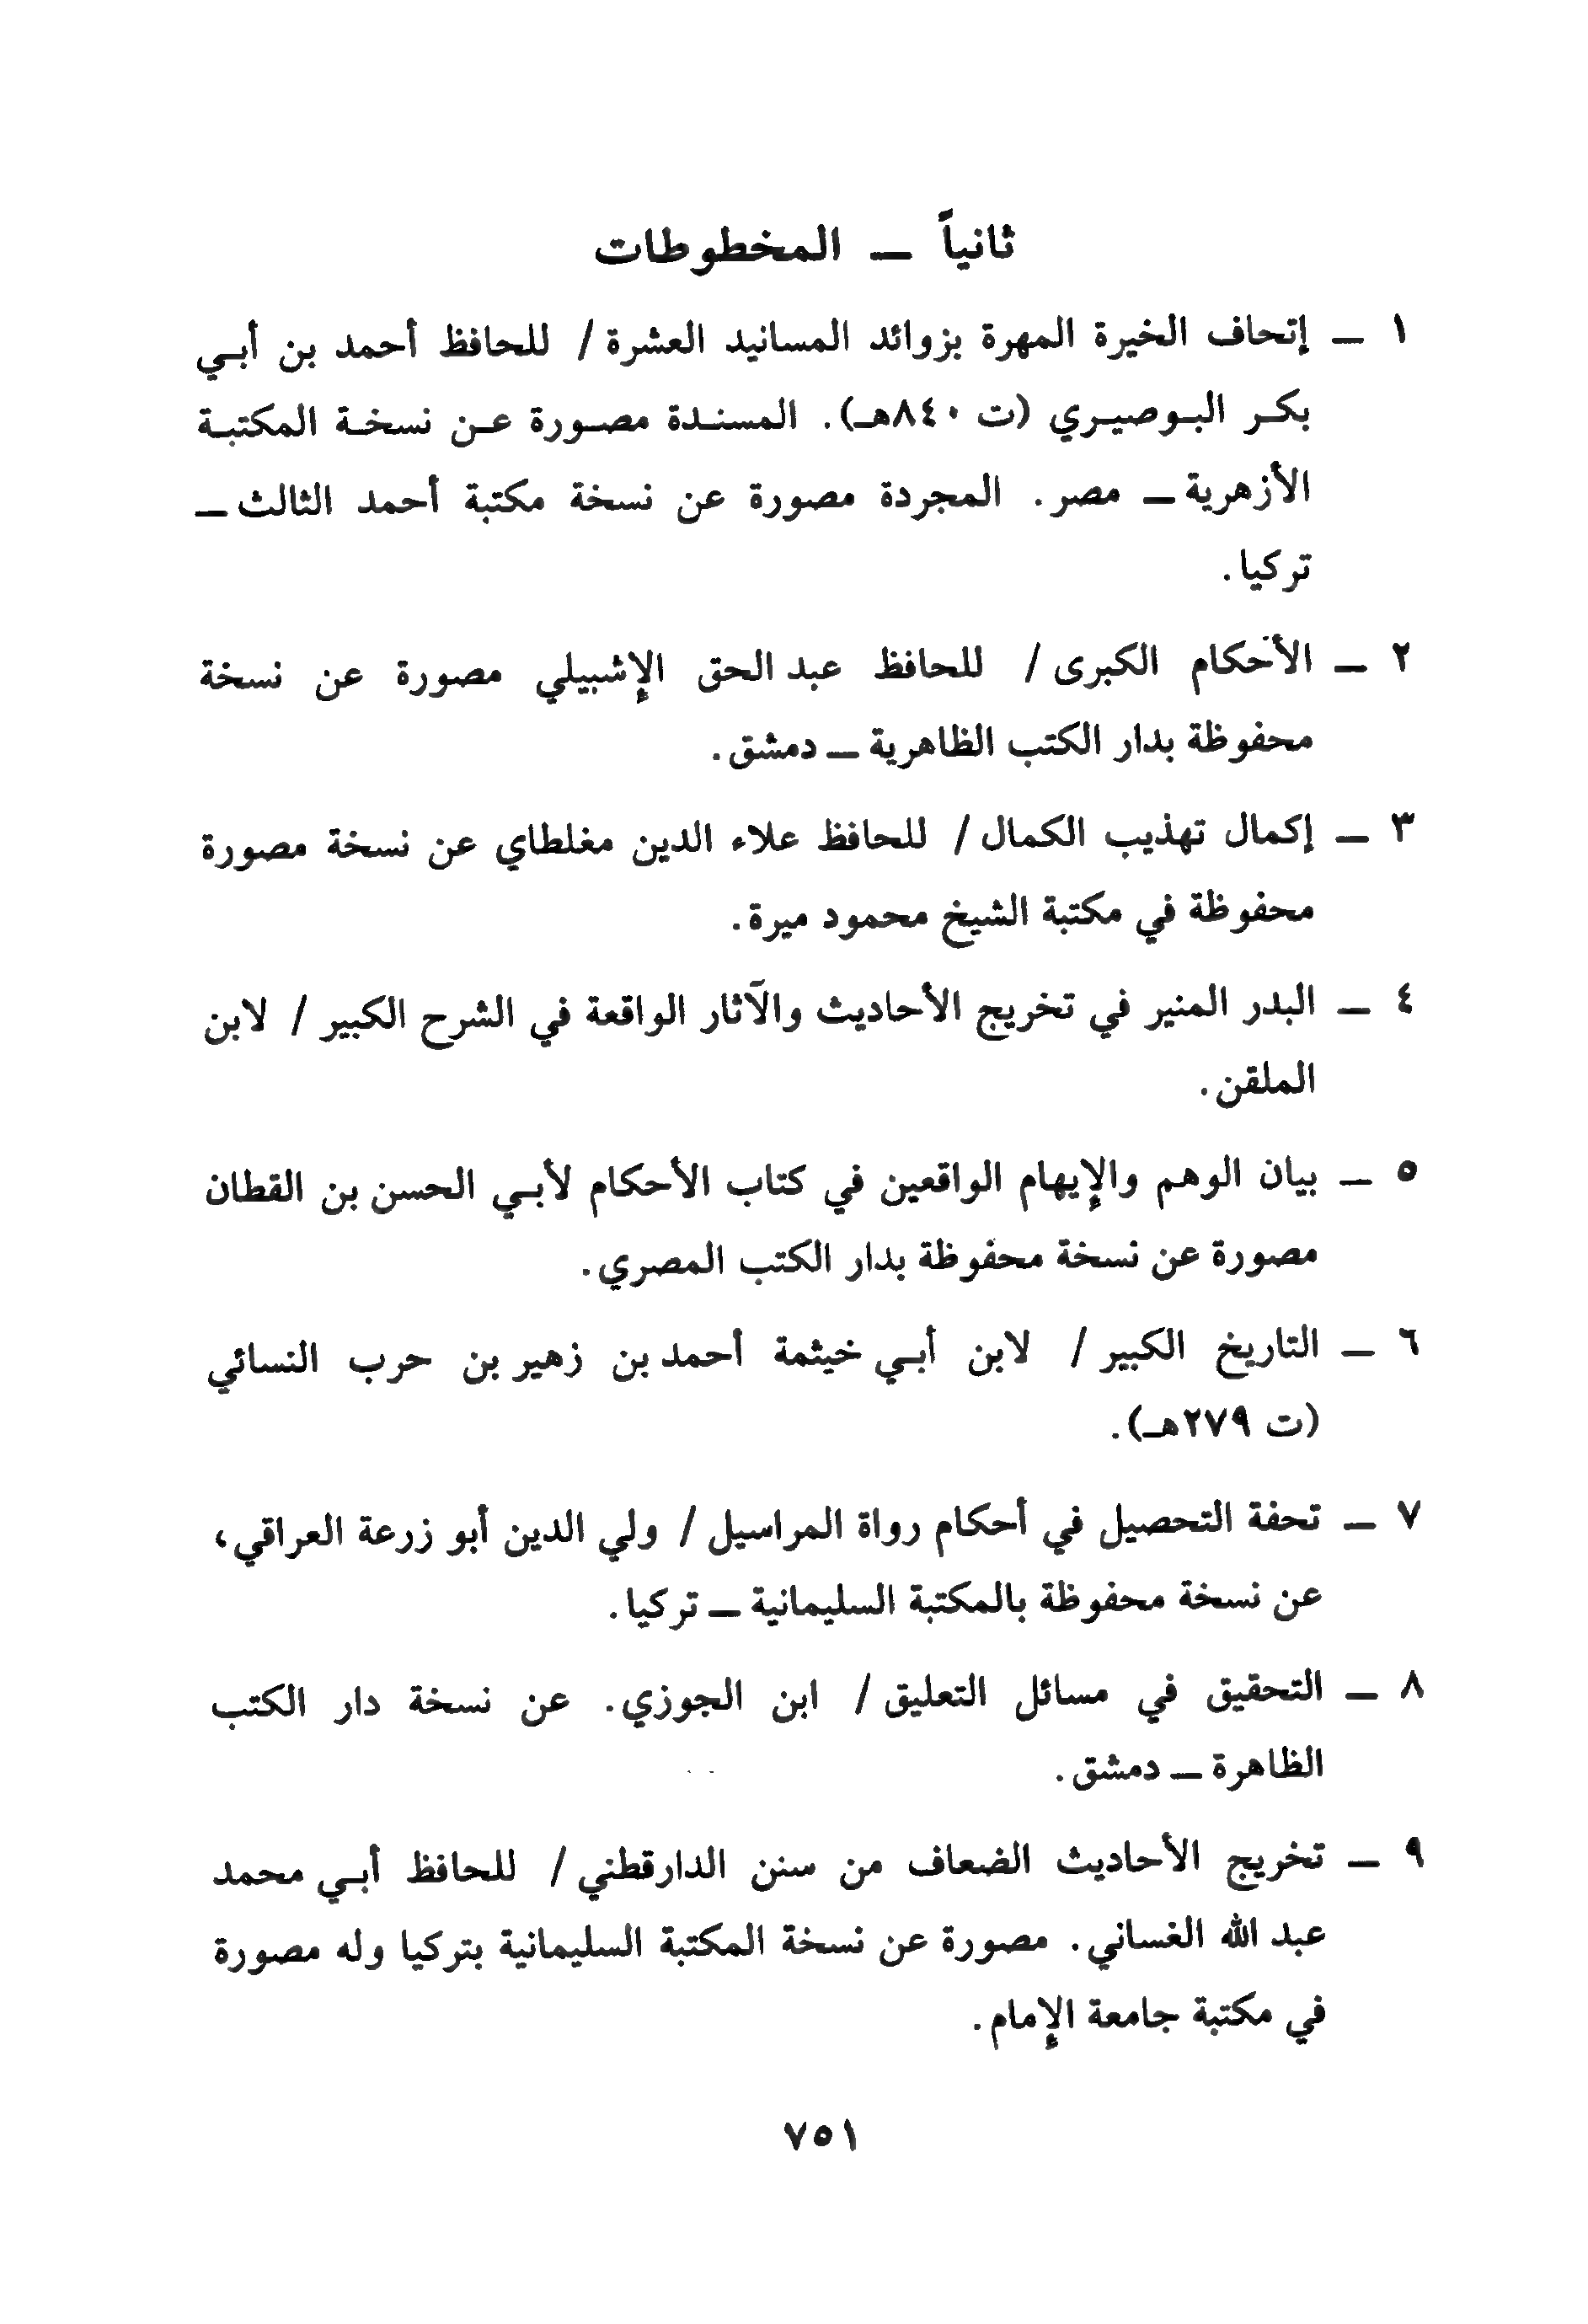 ثانياً ــ المخطوطات
١ ــ إتحاف الخيرة المهرة بزوائد المسانيد العشرة / للحافظ أحمد بن أبي
بكر البوصيري (ت ٨٤٠هـ). المسندة مصورة عن نسخة المكتبة
الأزهرية ــ مصر. المجردة مصورة عن نسخة مكتبة أحمد الثالث ــ
تركيا.
٢ ــ الأحكام الكبرى / للحافظ عبد الحق الإشبيلي مصورة عن نسخة
محفوظة بدار الكتب الظاهرية ــ دمشق.
٣ ــ إكمال تهذيب الكمال / للحافظ علاء الدين مغلطاي عن نسخة مصورة
محفوظة في مكتبة الشيخ محمود ميرة.
٤ ــ البدر المنير في تخريج الأحاديث والآثار الواقعة في الشرح الكبير / لابن
الملقن.
٥ ــ بيان الوهم والإيهام الواقعين في كتاب الأحكام لأبي الحسن بن القطان
مصورة عن نسخة محفوظة بدار الكتب المصري.
٦ ــ التاريخ الكبير / لابن أبي خيثمة أحمد بن زهير بن حرب النسائي
(ت ٢٧٩هـ).
٧ ــ تحفة التحصيل في أحكام رواة المراسيل / ولي الدين أبو زرعة العراقي،
عن نسخة محفوظة بالمكتبة السليمانية ــ تركيا.
٨ ــ التحقيق في مسائل التعليق / ابن الجوزي. عن نسخة دار الكتب
الظاهرة ــ دمشق.
٩ ــ تخريج الأحاديث الضعاف من سنن الدارقطني / للحافظ أبي محمد
عبد الله الغساني. مصورة عن نسخة المكتبة السليمانية بتركيا وله مصورة
في مكتبة جامعة الإمام.
٧٥١